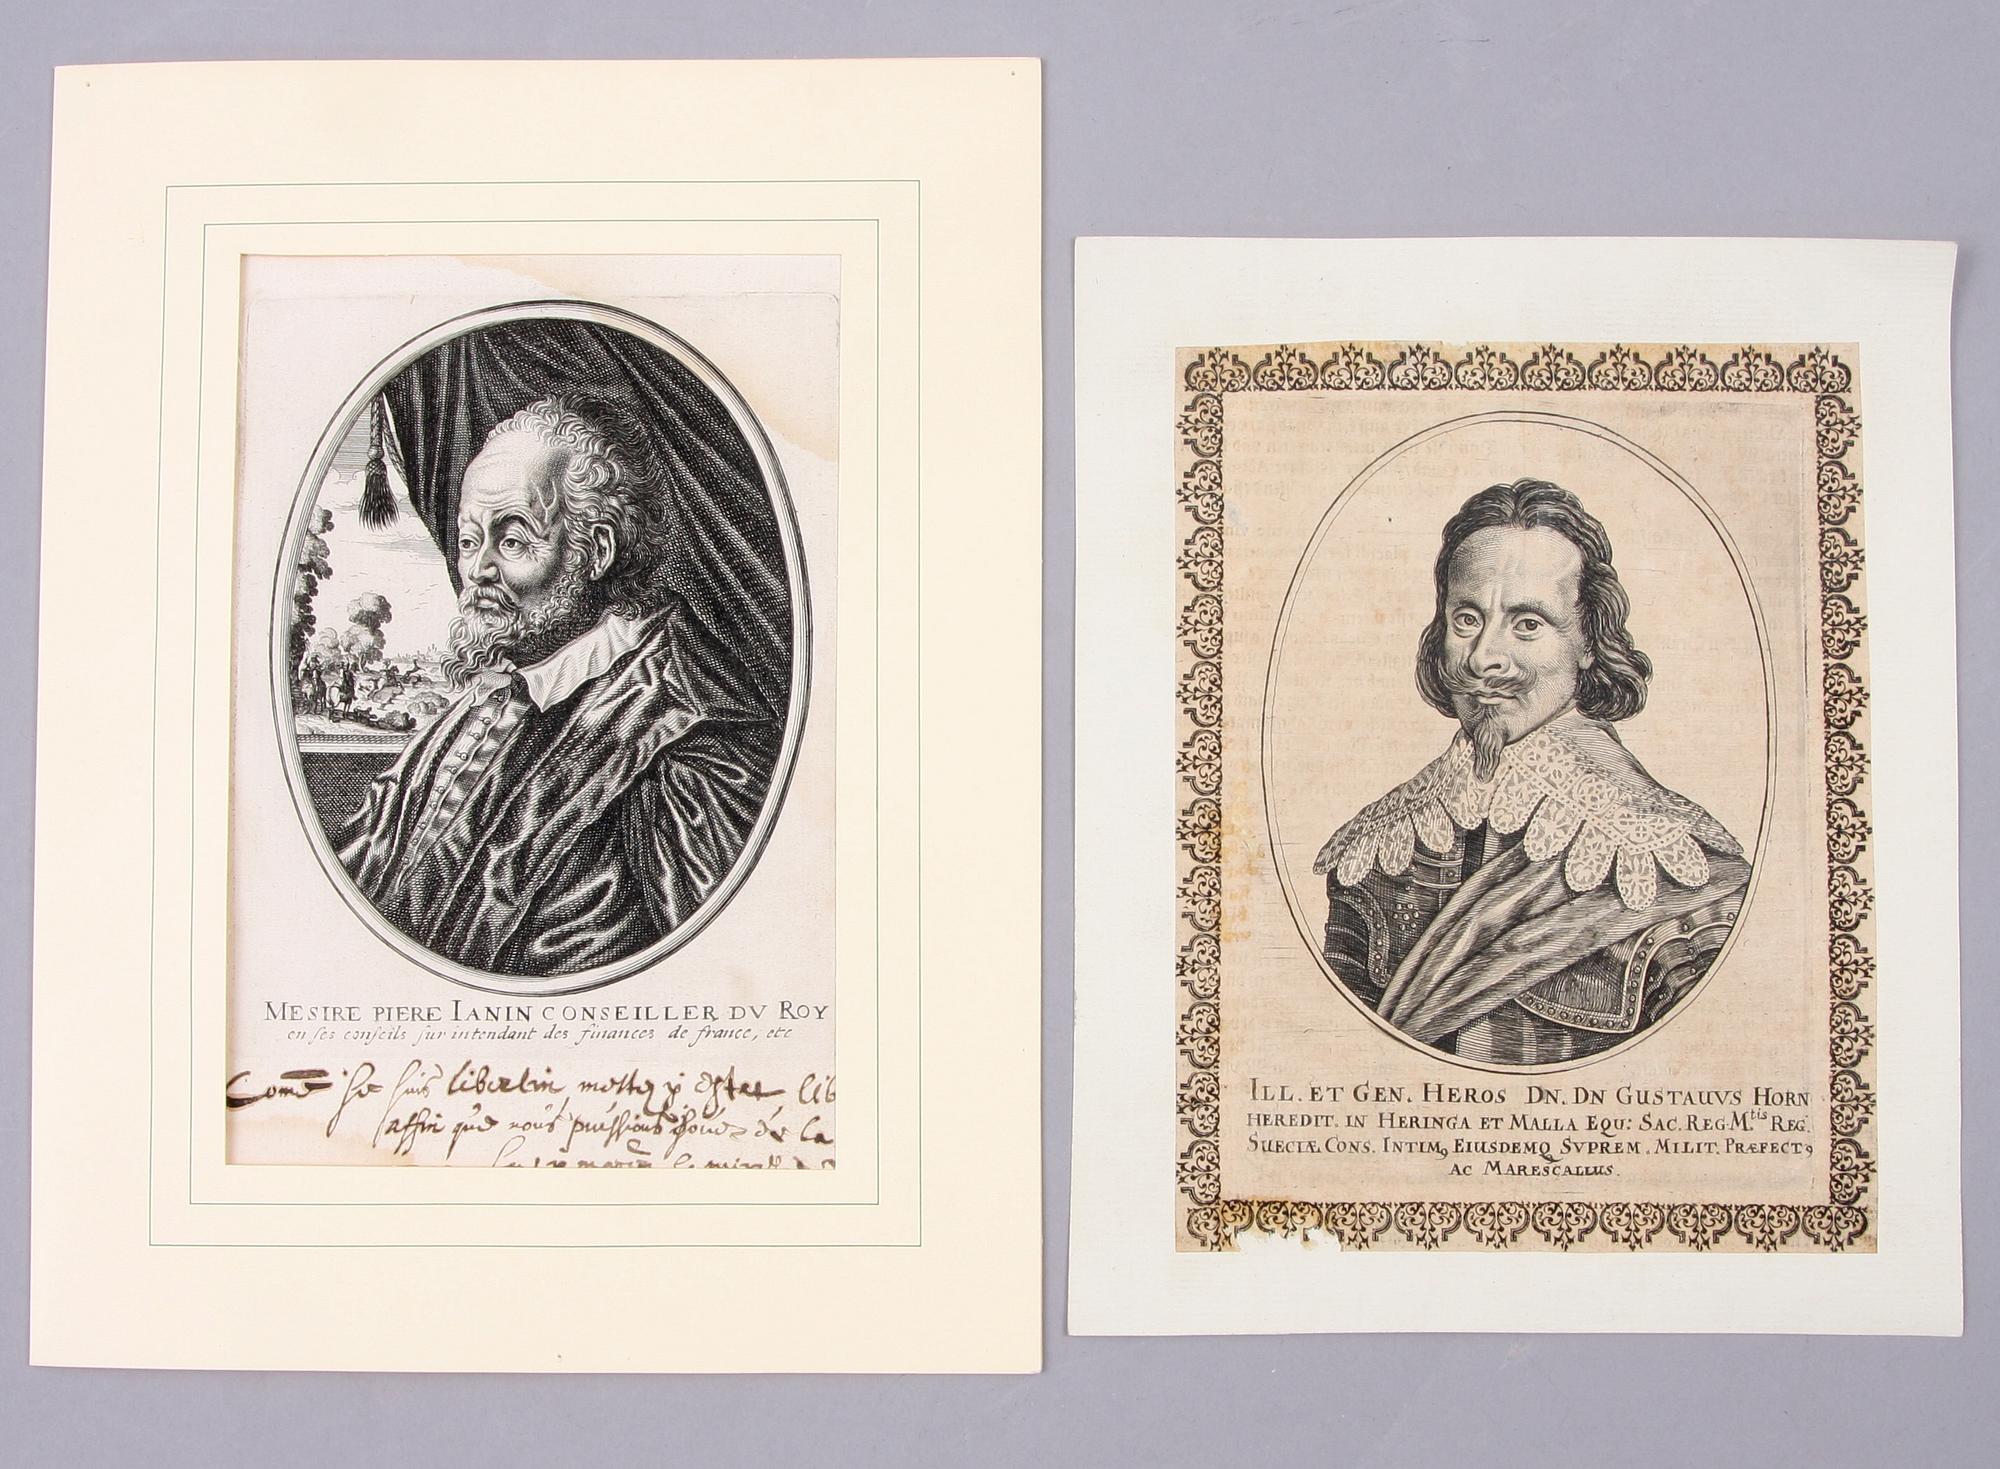 MESIRE PIERE IANIN CONSEILLER DV ROY
en ses conseils sur intendant des finances de france, etc
Come Je suis libertin mettez y estre lib
affin que nous puissions de la
ILL. ET GEN. HEROS DN. DN GUSTAUVS HORN
HEREDIT. IN HERINGA ET MALLA EQU: SAC. REG. M.tis REG.
SUECIÆ CONS. INTIM9 EIUSDEMQ SVPREM. MILIT. PRÆFECT9
AC MARESCALLUS.